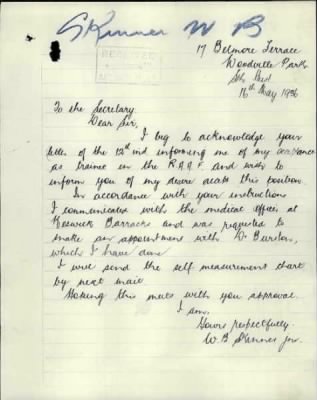 Skinner W B
17 Belmore Terrace
Woodville Park
Sth Aust
16th May 1936
RECEIVED
To the Secretary
Dear Sir,
I beg to acknowledge your
letter of the 12th inst informing me of my acceptance
as trainee in the R.A.A.F. and wish to
inform you of my desire accept this position.
In accordance with your instructions
I communicated with the medical officer at
Keswick Barracks and was requested to
make an appointment with Dr Burden,
which I have done
I will send the self measurement chart
by next mail
Hoping this meets with you approval.
I am,
Yours respectfully.
W.B Skinner jnr.